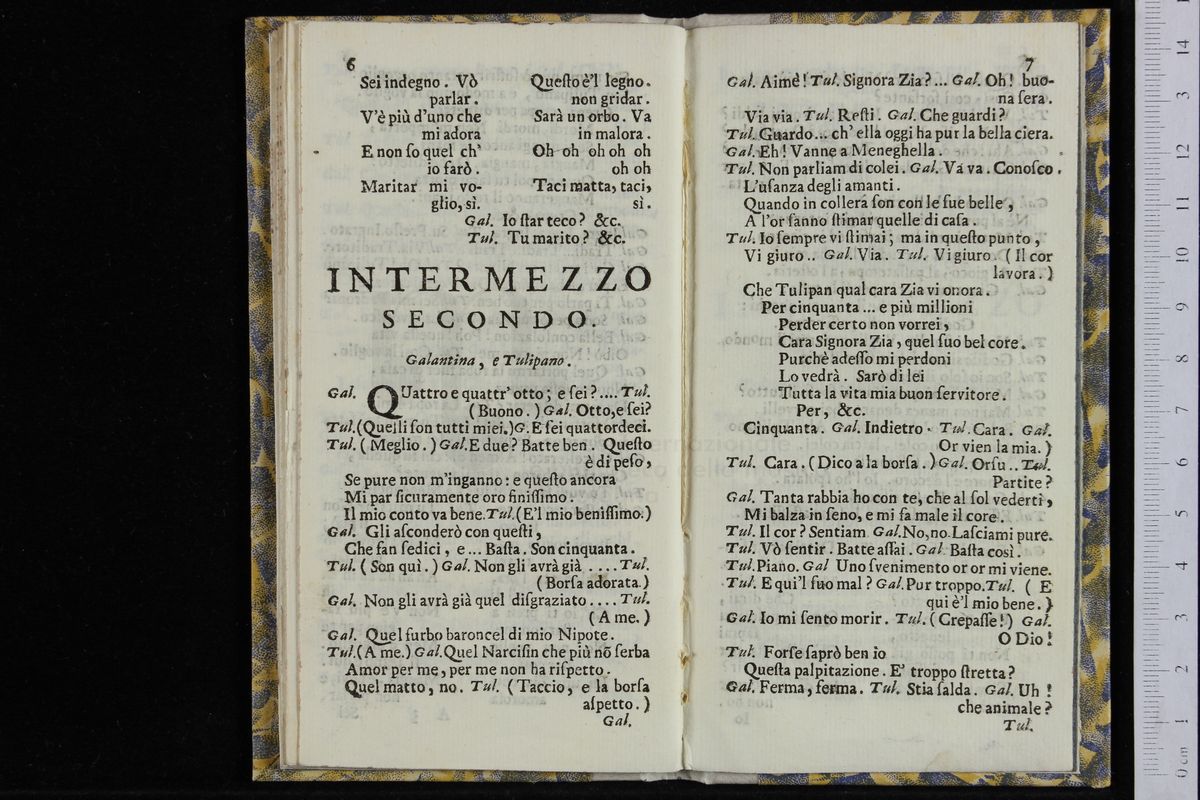 6
Sei indegno. Vò Queſto è'l legno.
parlar. non gridar.
V'è più d'uno che Sarà un orbo. Va
mi adora in malora.
E non ſo quel ch' Oh oh oh oh oh
io farò. oh oh
Maritar mi vo- Taci matta, taci,
glio, sì. sì.
Gal. Io ſtar teco? &c.
Tul. Tu marito? &c.
INTERMEZZO
SECONDO.
Galantina, e Tulipano.
Gal. QUattro e quattr' otto; e ſei?.... Tul.
(Buono.) Gal. Otto, e ſei?
Tul. (Quelli ſon tutti miei.) G. E ſei quattordeci.
Tul. (Meglio.) Gal. E due? Batte ben. Queſto
è di peſo,
Se pure non m'inganno: e queſto ancora
Mi par ſicuramente oro finiſſimo.
Il mio conto va bene. Tul. (E'l mio beniſſimo.)
Gal. Gli aſconderò con queſti,
Che fan ſedici, e... Baſta. Son cinquanta.
Tul. (Son quì.) Gal. Non gli avrà già .... Tul.
(Borſa adorata.)
Gal. Non gli avrà già quel diſgraziato.... Tul.
(A me.)
Gal. Quel furbo baroncel di mio Nipote.
Tul. (A me.) Gal. Quel Narciſin che più nõ ſerba
Amor per me, per me non ha riſpetto.
Quel matto, no. Tul. (Taccio, e la borſa
aſpetto.)
Gal.
7
Gal. Aimè! Tul. Signora Zia?... Gal. Oh! buo-
na ſera.
Via via. Tul. Reſti. Gal. Che guardi?
Tul. Guardo... ch' ella oggi ha pur la bella ciera.
Gal. Eh! Vanne a Meneghella.
Tul. Non parliam di colei. Gal. Va va. Conoſco
L'uſanza degli amanti.
Quando in collera ſon con le ſue belle,
A l'or fanno ſtimar quelle di caſa.
Tul. Io ſempre vi ſtimai; ma in queſto punto,
Vi giuro.. Gal. Via. Tul. Vi giuro. (Il cor
lavora.)
Che Tulipan qual cara Zia vi onora.
Per cinquanta ... e più millioni
Perder certo non vorrei,
Cara Signora Zia, quel ſuo bel core.
Purchè adeſſo mi perdoni
Lo vedrà. Sarò di lei
Tutta la vita mia buon ſervitore.
Per, &c.
Cinquanta. Gal. Indietro. Tul. Cara. Gal.
Or vien la mia.)
Tul. Cara. (Dico a la borſa.) Gal. Orſu.. Tul.
Partite?
Gal. Tanta rabbia ho con te, che al ſol vederti,
Mi balza in ſeno, e mi fa male il core.
Tul. Il cor? Sentiam. Gal. No, no. Laſciami pure.
Tul. Vò ſentir. Batte aſſai. Gal. Baſta così.
Tul. Piano. Gal Uno ſvenimento or or mi viene.
Tul. E qui'l ſuo mal? Gal. Pur troppo. Tul. (E
qui è'l mio bene.)
Gal. Io mi ſento morir. Tul. (Crepaſſe!) Gal.
O Dio!
Tul. Forſe ſaprò ben io
Queſta palpitazione. E' troppo ſtretta?
Gal. Ferma, ferma. Tul. Stia ſalda. Gal. Uh!
che animale?
Tul.
0 cm 1 2 3 4 5 6 7 8 9 10 11 12 13 14